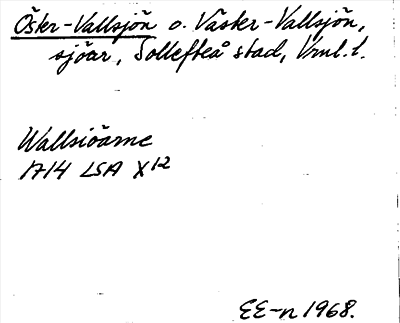 Öster-Vallsjön o. Väster-Vallsjön,
sjöar, Sollefteå stad, Vrnl. l.
Wallsiöarne
1714 LSA X12
EE-n 1968.